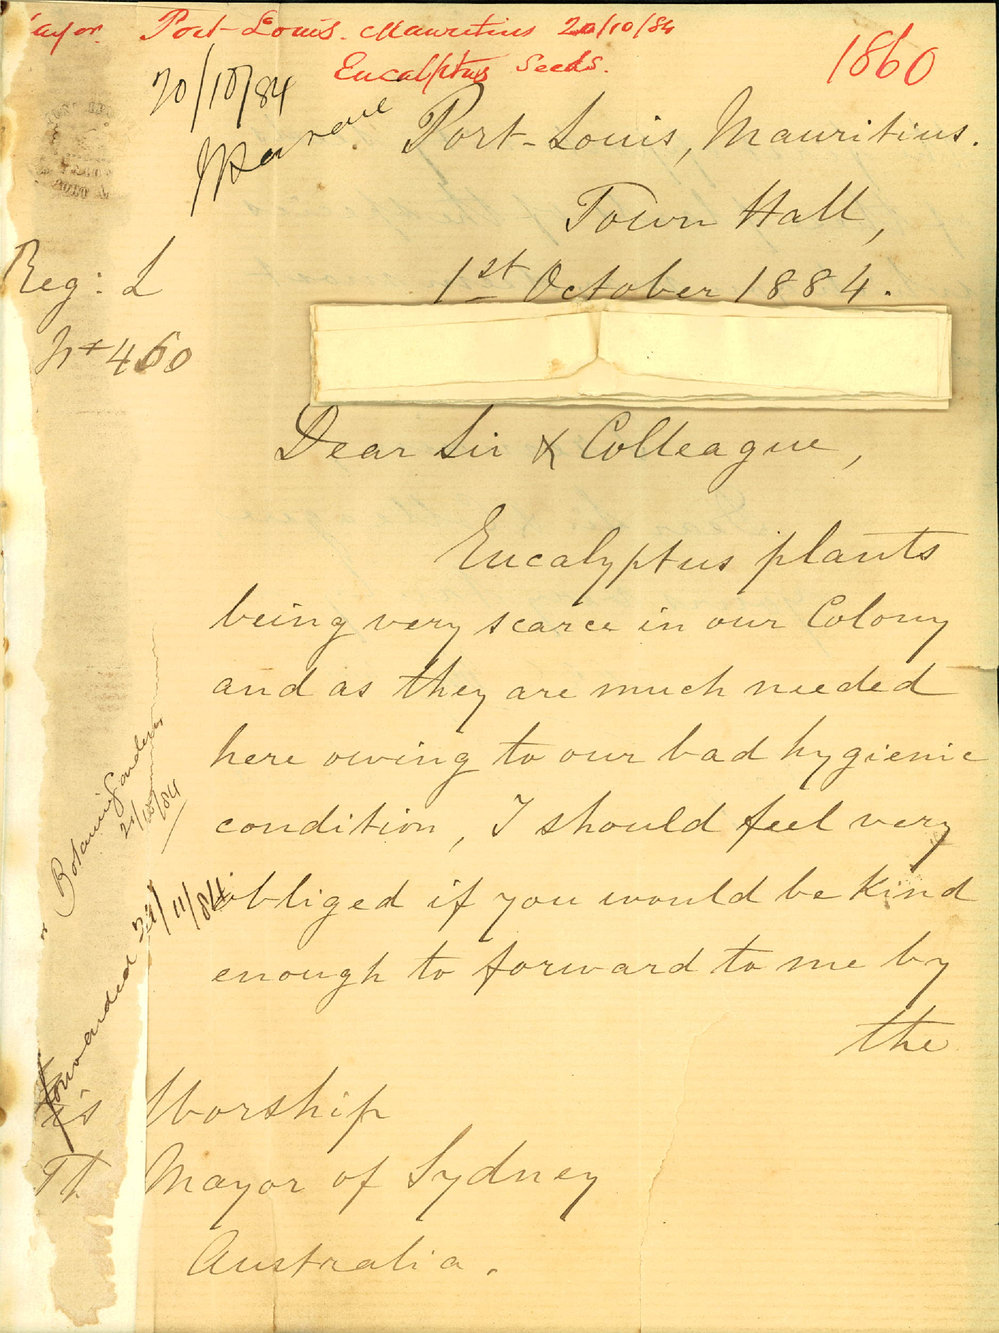 ayor. Port-Louis. Mauritius 20/10/84
Eucalyptus Seeds.
1860
20/10/84
Port-Louis, Mauritius.
Town Hall,
1st October 1884.
Reg: L
No 460
Dear Sir & Colleague,
Eucalyptus plants
being very scarce in our Colony
and as they are much needed
here owing to our bad hygienic
condition, I should feel very
obliged if you would be kind
enough to forward to me by
the
Botanic Gardens
21/10/84
Forwarded 21/11/84
is Worship
Th Mayor of Sydney
Australia.